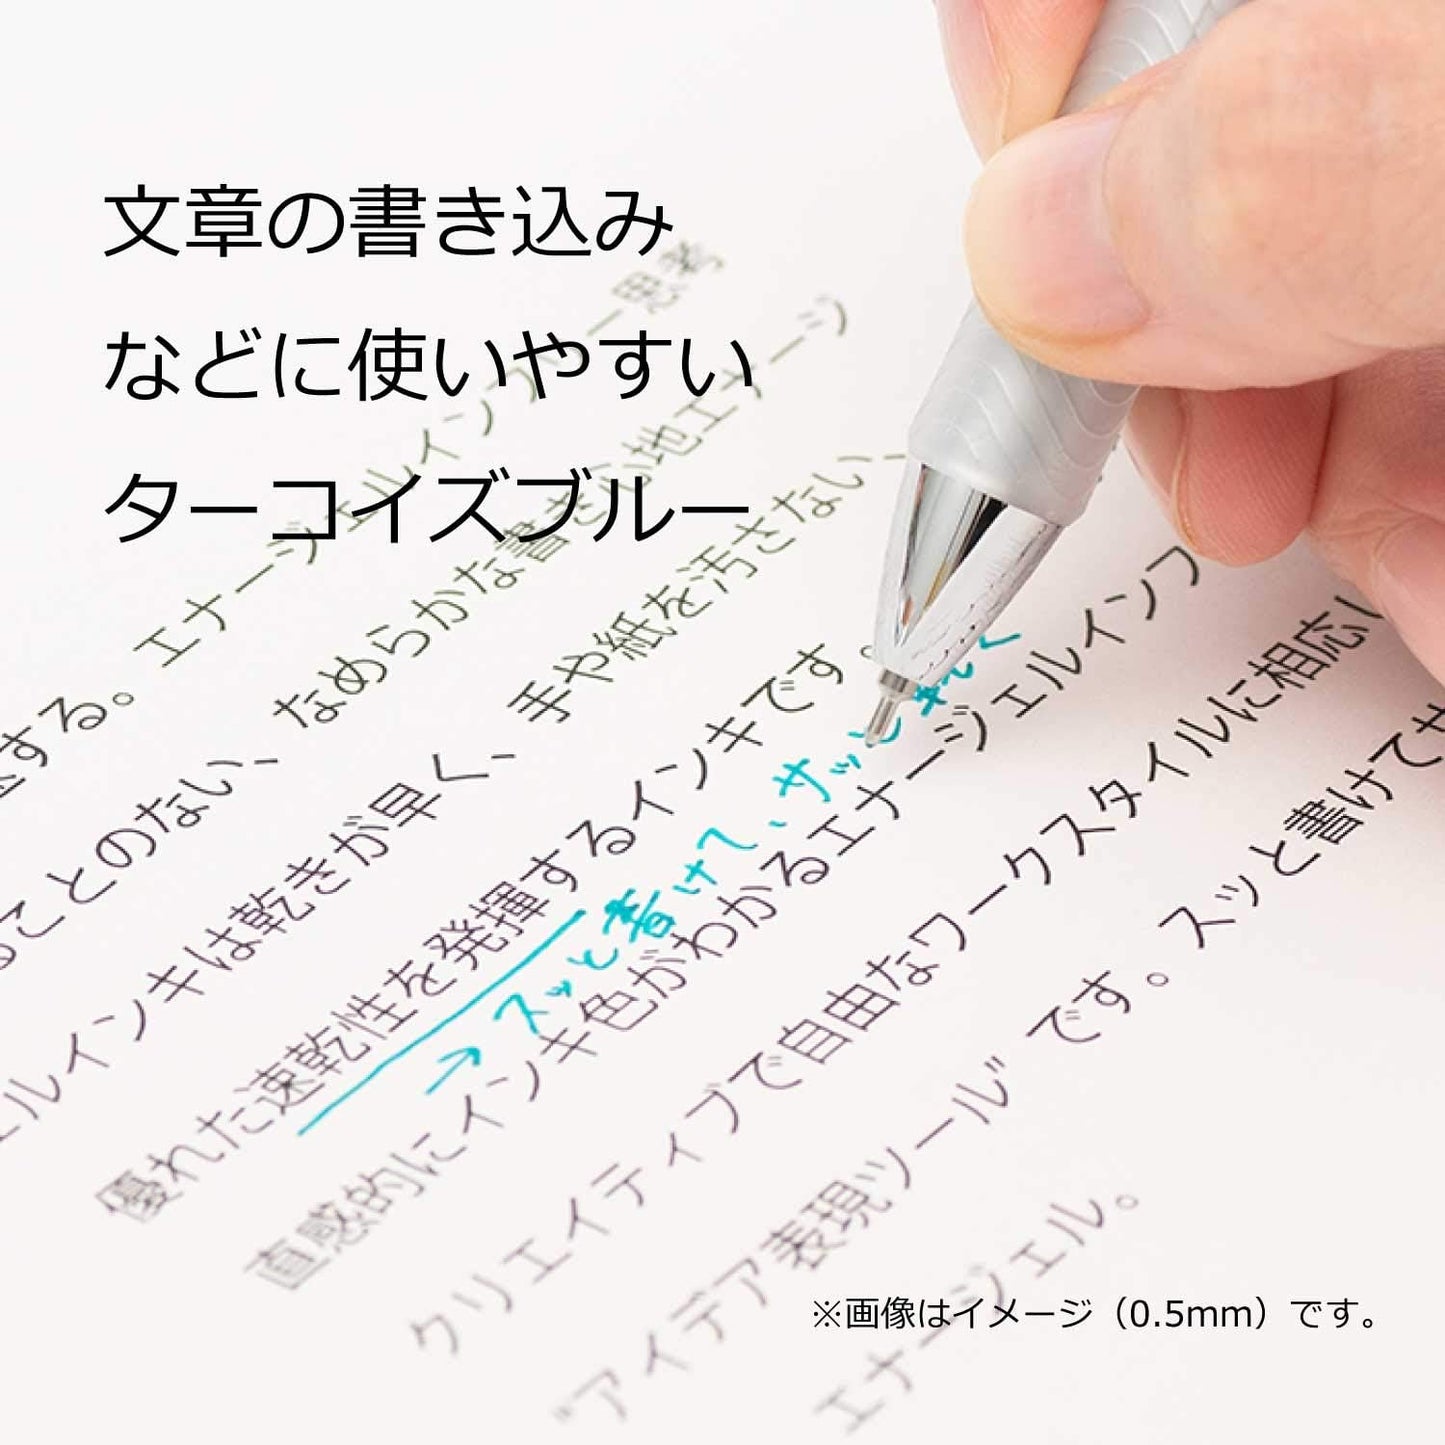 文章の書き込み
などに使いやすい
ターコイズブルー
エナージェルインフリー思考
する。
ことのない、なめらかな書き心地エナージ
ルインキは乾きが早く、手や紙を汚さない、
優れた速乾性を発揮するインキです。
→スッと書けて、サッと乾く
直感的にインキ色がわかるエナージェルインフ
クリエイティブで自由なワークスタイルに相応し
"アイデア表現ツール"です。スッと書けてサ
エナージェル。
※画像はイメージ（0.5mm）です。